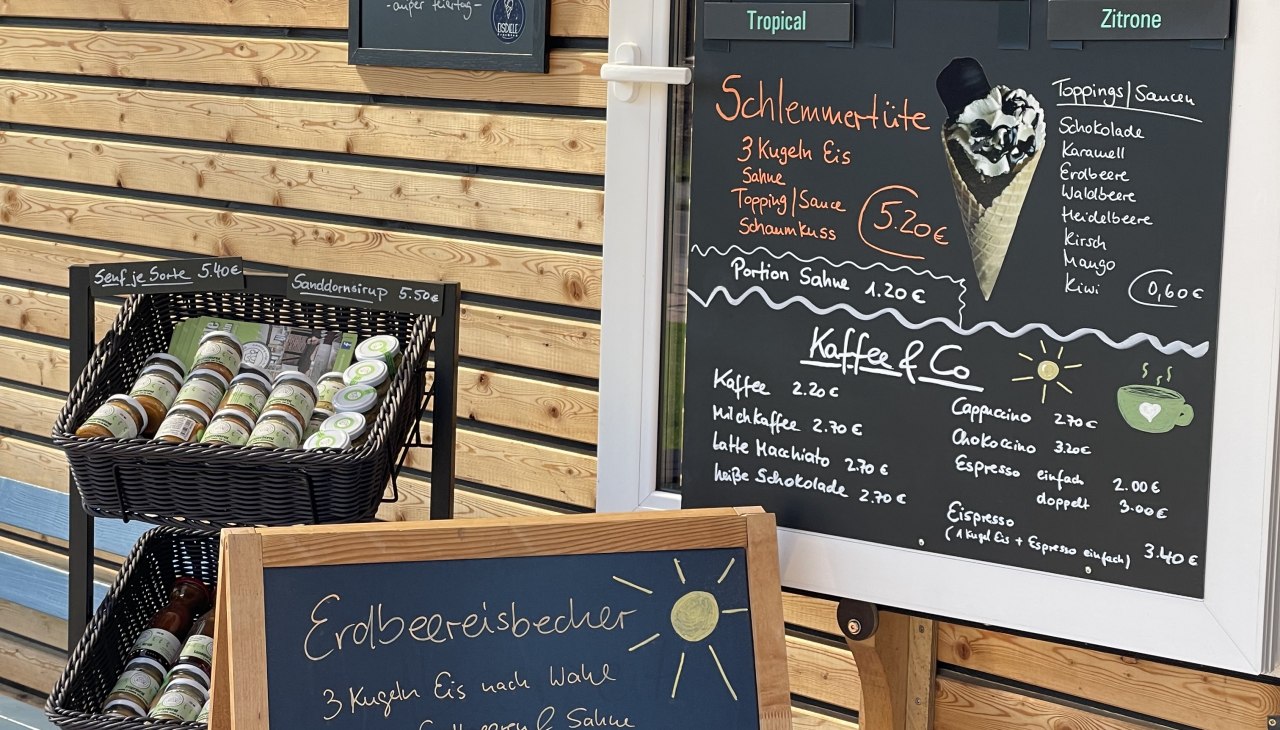 -außer Feiertag-
EISDIELE
Tropical
Zitrone
Schlemmertüte
3 Kugeln Eis
Sahne
Topping/Sauce
Schaumkuss
5.20€
Portion Sahne 1.20€
Toppings/Saucen
Schokolade
Karamell
Erdbeere
Waldbeere
Heidelbeere
Kirsch
Mango
Kiwi
0,60€
Kaffee & Co
Kaffee 2.20€
Milchkaffee 2.70€
Latte Macchiato 2.70€
heiße Schokolade 2.70€
Cappuccino 2.70€
Chokoccino 3.20€
Espresso einfach 2.00€
doppelt 3.00€
Eispresso
(1 Kugel Eis + Espresso einfach) 3.40€
Senf je Sorte 5.40€
Sanddornsirup 5.50€
Erdbeereisbecher
3 Kugeln Eis nach Wahl
& Sahne